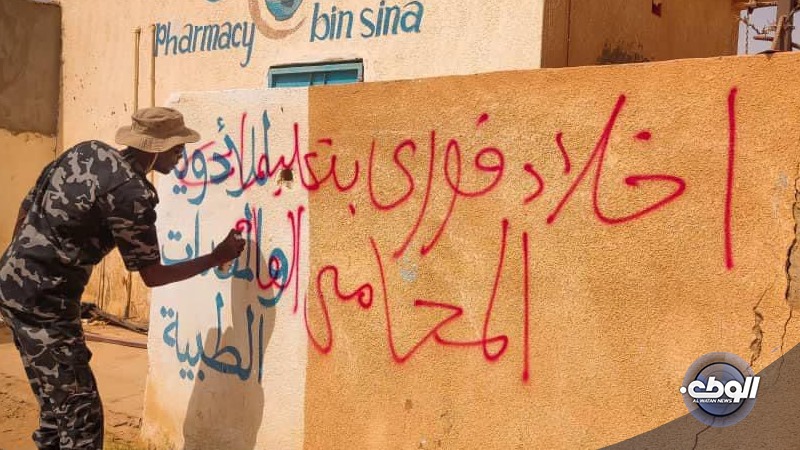 pharmacy bin sina
اخلاء فوري بتعليمات
المحامي العام
للأدوية
والمعدات
الطبية
الوطن
ALWATAN NEWS